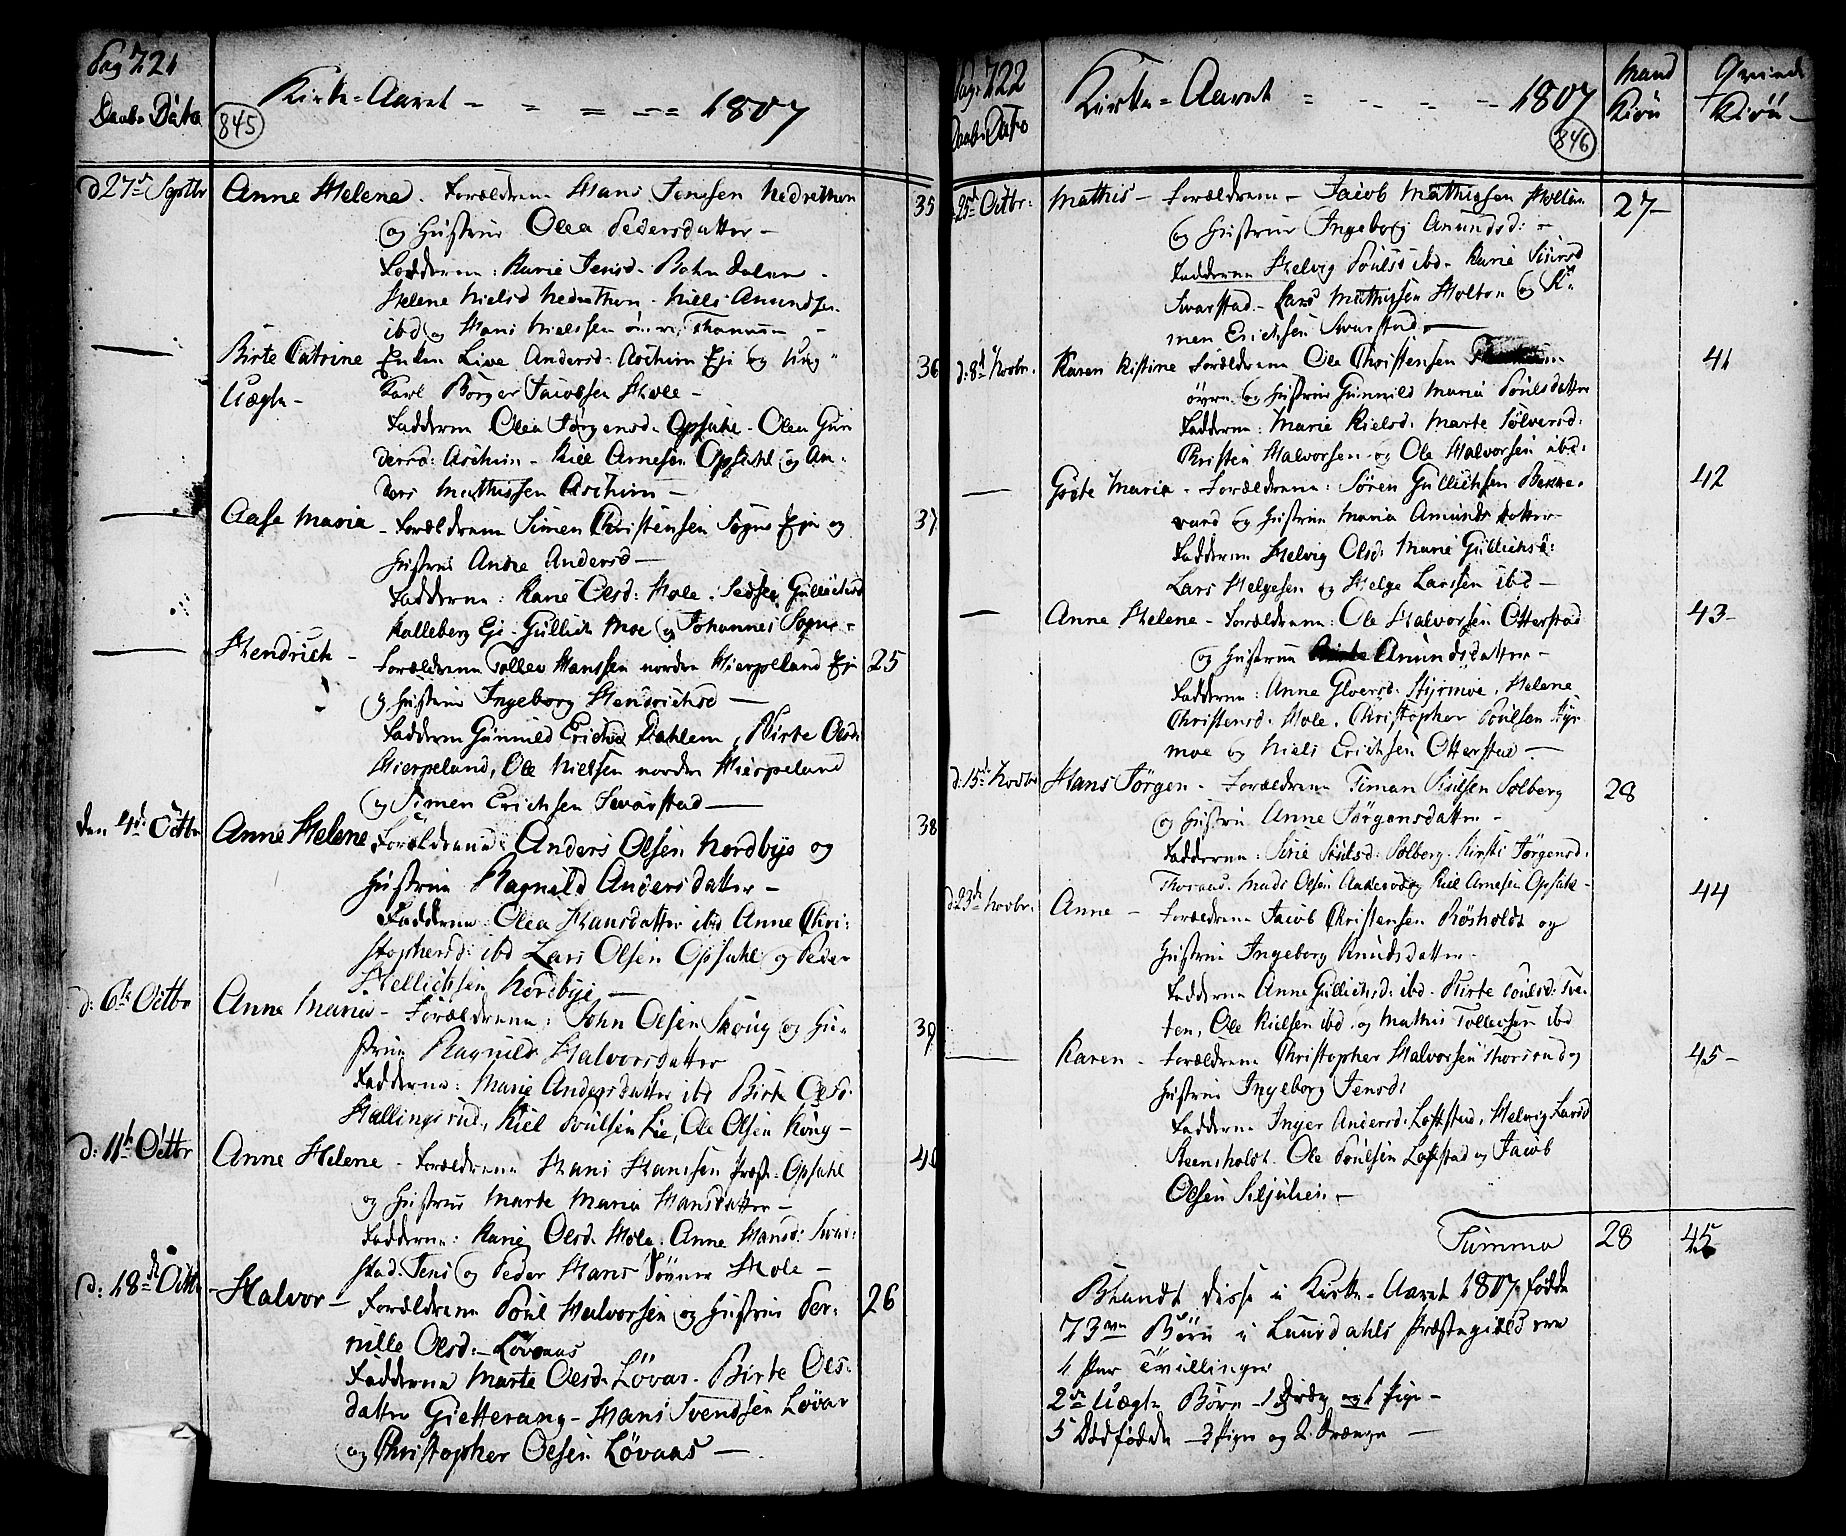 Pag 721
Daabs Dato
845
Kirke-Aaret - = = -- = 1807
d 27de Septbr
Anne Helene. Forældrene Hans Jenssen Nedrethon 35
og Hustrue Olea Pedersdatter -
Fadderne: Karie Jensd.
Helene Nielsd Nedrethon - Niels Amundsen
ibd og Hans Nielssen
Birte Catrine Enken Live Andersd: Aschim Eje og Ung 36
Uægte - Karl Børger Jacobsen Hole -
Fadderne Olea Jørgensd. Opsahl - Olea Gun
dersd: Aschim - Kiel Arnesen Opsahl og An-
ders Mathissen Aschim -
Aase Maria - Forældrene Simen Christensen Sogne Eje og 37
Hustrue Andrea Andersd -
Fadderne: Karie Olsd: Hole. Gullichsd
Kalleberg Eje - Gullich Moe og Johannes Sogne -
Hendrich - Forældrene Tollev Hanssen nordre Hierpeland Eje 25
og Hustrue Ingeborg Hendrichsd -
Fadderne Gunnild Erichsd Dahlem, Birte Olsd.
Hierpeland, Ole Nielsen nordre Hierpeland
og Simen Erichsen Svarstad -
den 4de Octbr
Anne Helene Forældrene: Anders Olsen Nordbye og 38
Hustrue Ragnild Andersdatter -
Fadderne: Olea Hansdatter ibd Anne Chri-
stophersd: ibd Lars Olsen Opsahl og Peder
Hellichsen Nordbye -
d: 6te Octbr
Anne Maria - Forældrene: John Olsen Skoug og Hu- 39
strue Ragnild Halvorsdatter
Fadderne: Marie Andersdatter ibd Birte Olsd.
Hallingsrud, Kiel Poulsen Lie, Ole Olsen Skoug -
d: 11te Octbr
Anne Helene - Forældrene Hans Hanssen Præst. Opsahl 40
og Hustrue Marte Maria Hansdatter -
Fadderne: Karie Olsd. Hole. Anne Hansd: Svar-
stad. Jens og Peder Hans Sønner Hole -
d: 18de Octbr
Halvor - Forældrene Poul Halvorsen og Hustrue Per- 26
nille Olsd. - Løvaas
Fadderne Marte Olsd. Løvas. Birte Ols-
datter Gietterang - Hans Svendsen Løvas
og Christopher Olsen Løvaas -
Pag. 722
Daabs Dato
Kirke-Aaret = - - = -- 1807
846
Mand Kiøn
Qvinde Kiøn -
25de Octbr:
Mathis - Forældrene - Jacob Mathissen Holtan 27 -
og Hustrue Ingeborg Amundsd: -
Fadderne Helvig Poulsd ibd. Karie Siversd
Svarstad - Lars Mathissen Holtan og
men Erichsen Svarstad. -
d: 8de Novbr.
Karen Kistine Forældrene Ole Christensen 41
øvre og Hustrue Gunnild Maria Poulsdatter
Fadderne: Marie Kielsd. Marte Sølversd.
Christen Halvorsen og Ole Halvorsen ibd.
Grøte Maria - Forældrene: Søren Gullichsen Bakke- 42
rand og Hustrue Maria Amunds datter
Fadderne Helvig Olsd. Marie Gullichsd:
Lars Helgesen og Helge Larssen ibd -
Anne Helene - Forældrene: Ole Halvorsen Otterstad 43 -
og Hustrue Amundsdatter -
Fadderne: Anne Glversd. Styrmoe. Helene
Christensd. Hole. Christopher Poulsen Styr
moe og Niels Erichsen Otterstad -
d: 15de Novbr
Hans Jørgen - Forældrene Timan Poulsen Solberg 28
og Hustrue Anne Jørgensdatter -
Fadderne: Sirie Poulsd. Solberg. Kirsti Jørgensd.
Thorsrud. Mads Olsen og Kiel Arnesen Opsahl -
d. 23de Novbr:
Anne - Forældrene Jacob Christensen Røsholdt og 44
Hustrue Ingeborg Knudsdatter -
Fadderne Anne Gullichsd: ibd - Birte Poulsd: Tve-
ten, Ole Kielsen ibd. og Mathis Tollevsen ibd
Karen - Forældrene Christopher Halvorsen Thorsrud og 45 -
Hustrue Ingeborg Jensd:
Fadderne Inger Andersd. Loftstad, Helvig Larsd
Steensholdt. Ole Poulsen Loftstad og Jacob
Olsen Seljulsei. -
Summa 28 45
Blandt disse i Kirke-Aaret 1807 fødde
73 Børn i Laurdahls Præstegield ere
1 Par Tvillinger
2de Uægte Børn - 1 Dreng og 1 Pige -
5 Dødfødde - 3 Piger og 2. Drenge -